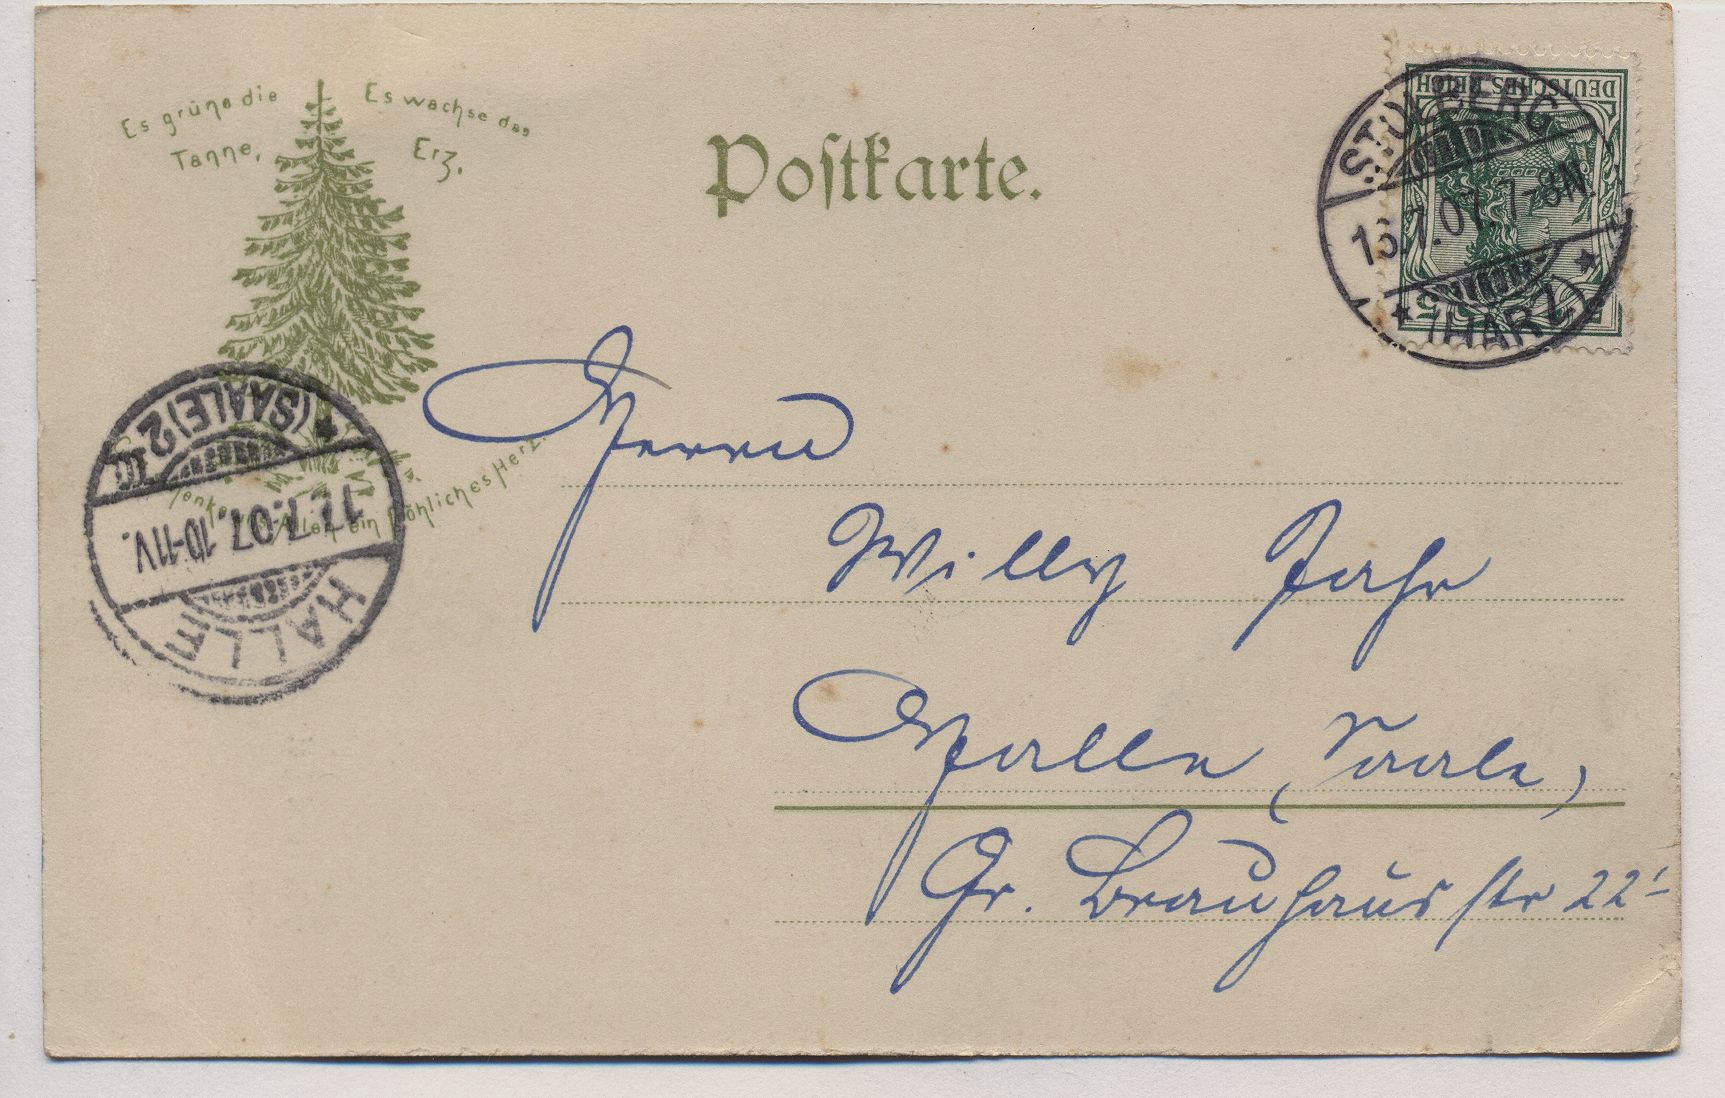 Es grüne die Tanne,
Es wachse das Erz,
Postkarte.
DEUTSCHES REICH
5
STOLBERG
7.07. 7-8N
* (HARZ) *
Herrn
Willy Jahr
Halle (Saale)
Gr. Brauhausstr 22
uns Allen ein fröhliches Herz.
* (SAALE) 2
17.7.07. 10-11V.
HALLE